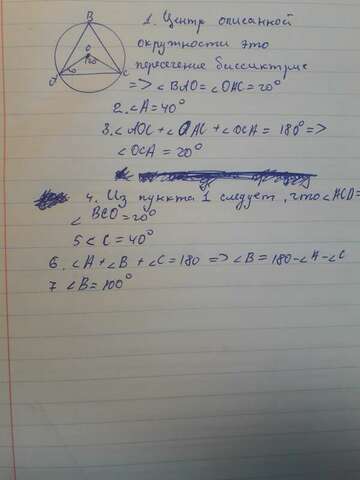 B
O
120°
20
A
C
1. Центр описанной
окружности это
пересечение биссиктрис
=> ∠BAO = ∠OAC = 20°
2. ∠A = 40°
3. ∠AOC + ∠OAC + ∠OCA = 180° =>
∠OCA = 20°
4. Из пункта 1 следует, что ∠ACO =
∠BCO = 20°
5 ∠C = 40°
6. ∠A + ∠B + ∠C = 180 => ∠B = 180 - ∠A - ∠C
7 ∠B = 100°